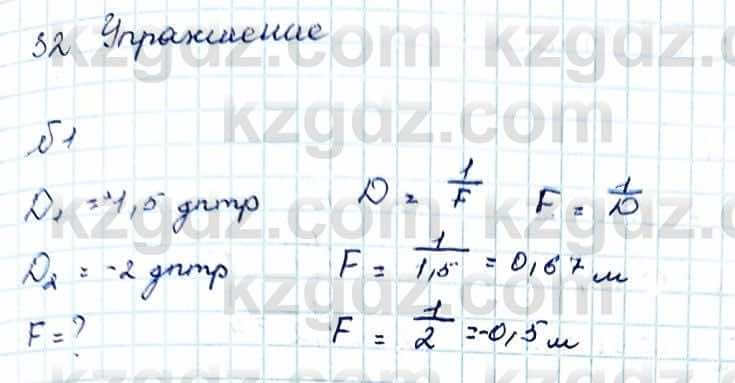 32 Упражнение
№1
D₁ = +1,5 дптр
D₂ = -2 дптр
F = ?
D = 1/F F = 1/D
F = 1/1,5 = 0,67 м
F = 1/2 = -0,5 м
kzgdz.com kzgdz.com
kzgdz.com
kzgdz.com kzgdz.com
kzgdz.com
kzgdz.com kzgdz.com